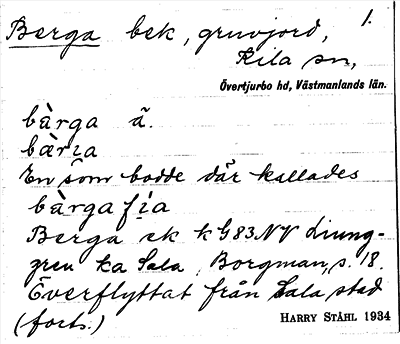 Berga bek, gruvjord, 1.
Kila sn,
Övertjurbo hd, Västmanlands län.
bàrga ä.
bæria
En som bodde där kallades
bàrgafia
Berga ek k G83NV Ljung-
gren ka Sala, Borgman, s. 18.
Överflyttat från Sala stad
(forts.) HARRY STÅHL 1934